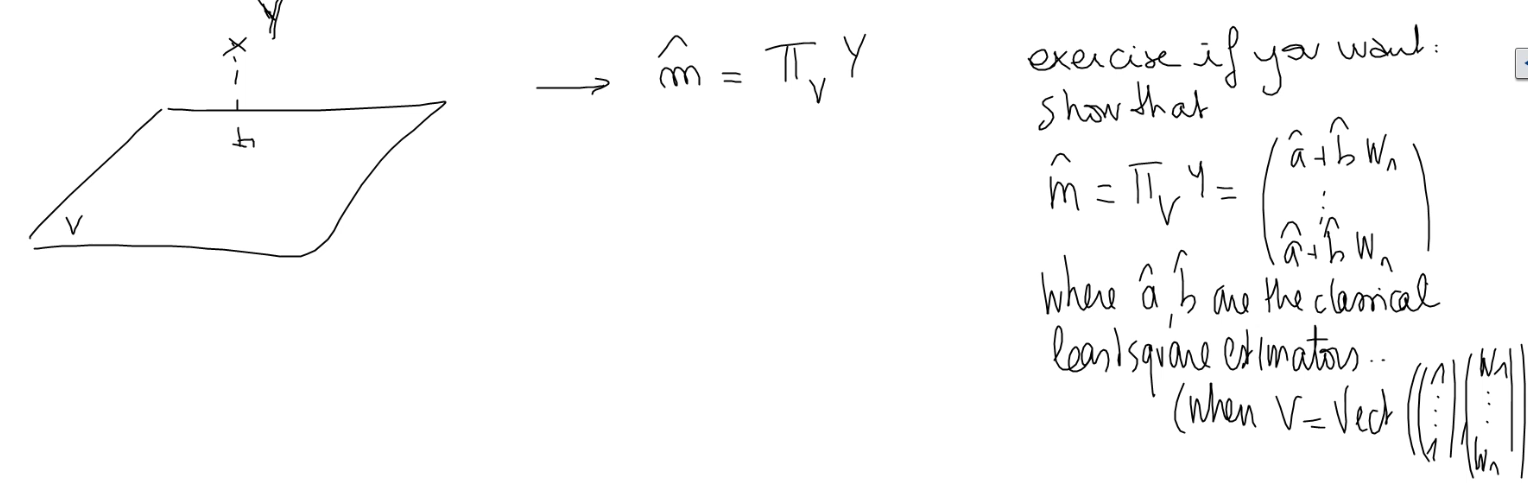 Y
→ m̂ = Π_V Y
V
exercise if you want:
show that
m̂ = Π_V Y = ( â + b̂ W₁
⋮
â + b̂ Wₙ )
where â, b̂ are the classical
least square estimators..
(when V = Vect ( (1 ⋮ 1), (W₁ ⋮ Wₙ) )